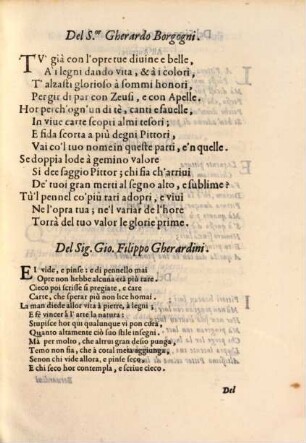 Del S.<sup>or</sup> Gherardo Borgogni.
TV' già con l'opre tue diuine e belle,
A i legni dando vita, & à i colori,
T' alzasti glorioso à sommi honori,
Per gir di par con Zeusi, e con Apelle.
Hor perch'ogn'un di tè, canti e fauelle,
In viue carte scopri almi tesori;
E fida scorta a più degni Pittori,
Vai co'l tuo nome in queste parti, e'n quelle.
Se doppia lode à gemino valore
Si dee saggio Pittor; chi fia ch'arriui
De' tuoi gran merti al segno alto, e sublime?
Tù'l pennel co'più rari adopri, e viui
Ne l'opra tua; ne'l variar de l'hore
Torrà del tuo valor le glorie prime.
Del Sig. Gio. Filippo Gherardini.
EI vide, e pinse: e di pennello mai
Opre non hebbe alcuna età più rare.
Cieco poi scrisse sì pregiate, e care
Carte, che sperar più non lice homai.
La man diede all'or vita à pietre, à legni;
E fè vincer à l' arte la natura:
Stupisce hor quì qualunque vi pon cura,
Quanto altamente ciò suo stile insegni.
Mà per molto, che altrui gran desio punga,
Temo non sia, che à cotal meta aggiunga,
Se non chi vide allora, e pinse seco,
E chi seco hor contempla, e scriue cieco.
Del